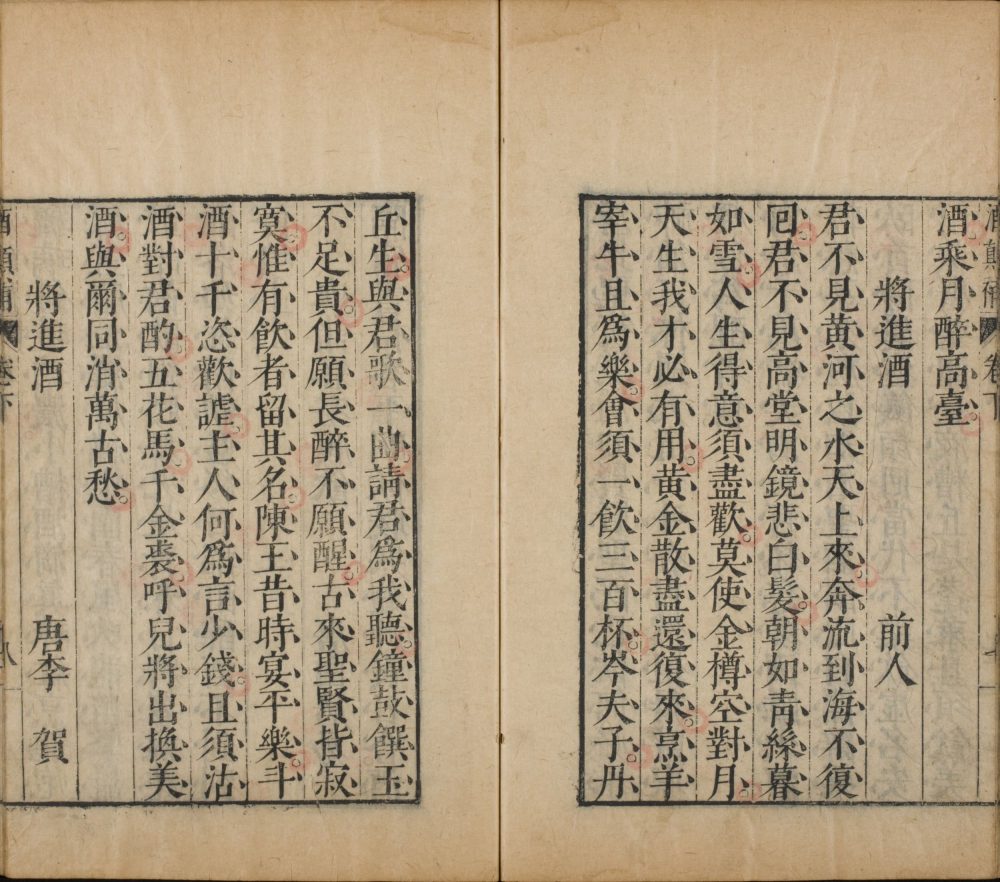 酒顛補 卷下
酒乘月醉高臺
將進酒 前人
君不見黃河之水天上來奔流到海不復
囘君不見高堂明鏡悲白髮朝如靑絲暮
如雪人生得意須盡歡莫使金樽空對月
天生我才必有用黃金散盡還復來烹羊
宰牛且爲樂會須一飲三百杯岑夫子丹
丘生與君歌一曲請君爲我聽鐘鼓饌玉
不足貴但願長醉不願醒古來聖賢皆寂
寞惟有飲者留其名陳王昔時宴平樂斗
酒十千恣歡謔主人何爲言少錢且須沽
酒對君酌五花馬千金裘呼兒將出換美
酒與爾同消萬古愁
將進酒 唐李 賀
酒顛補 卷下 八